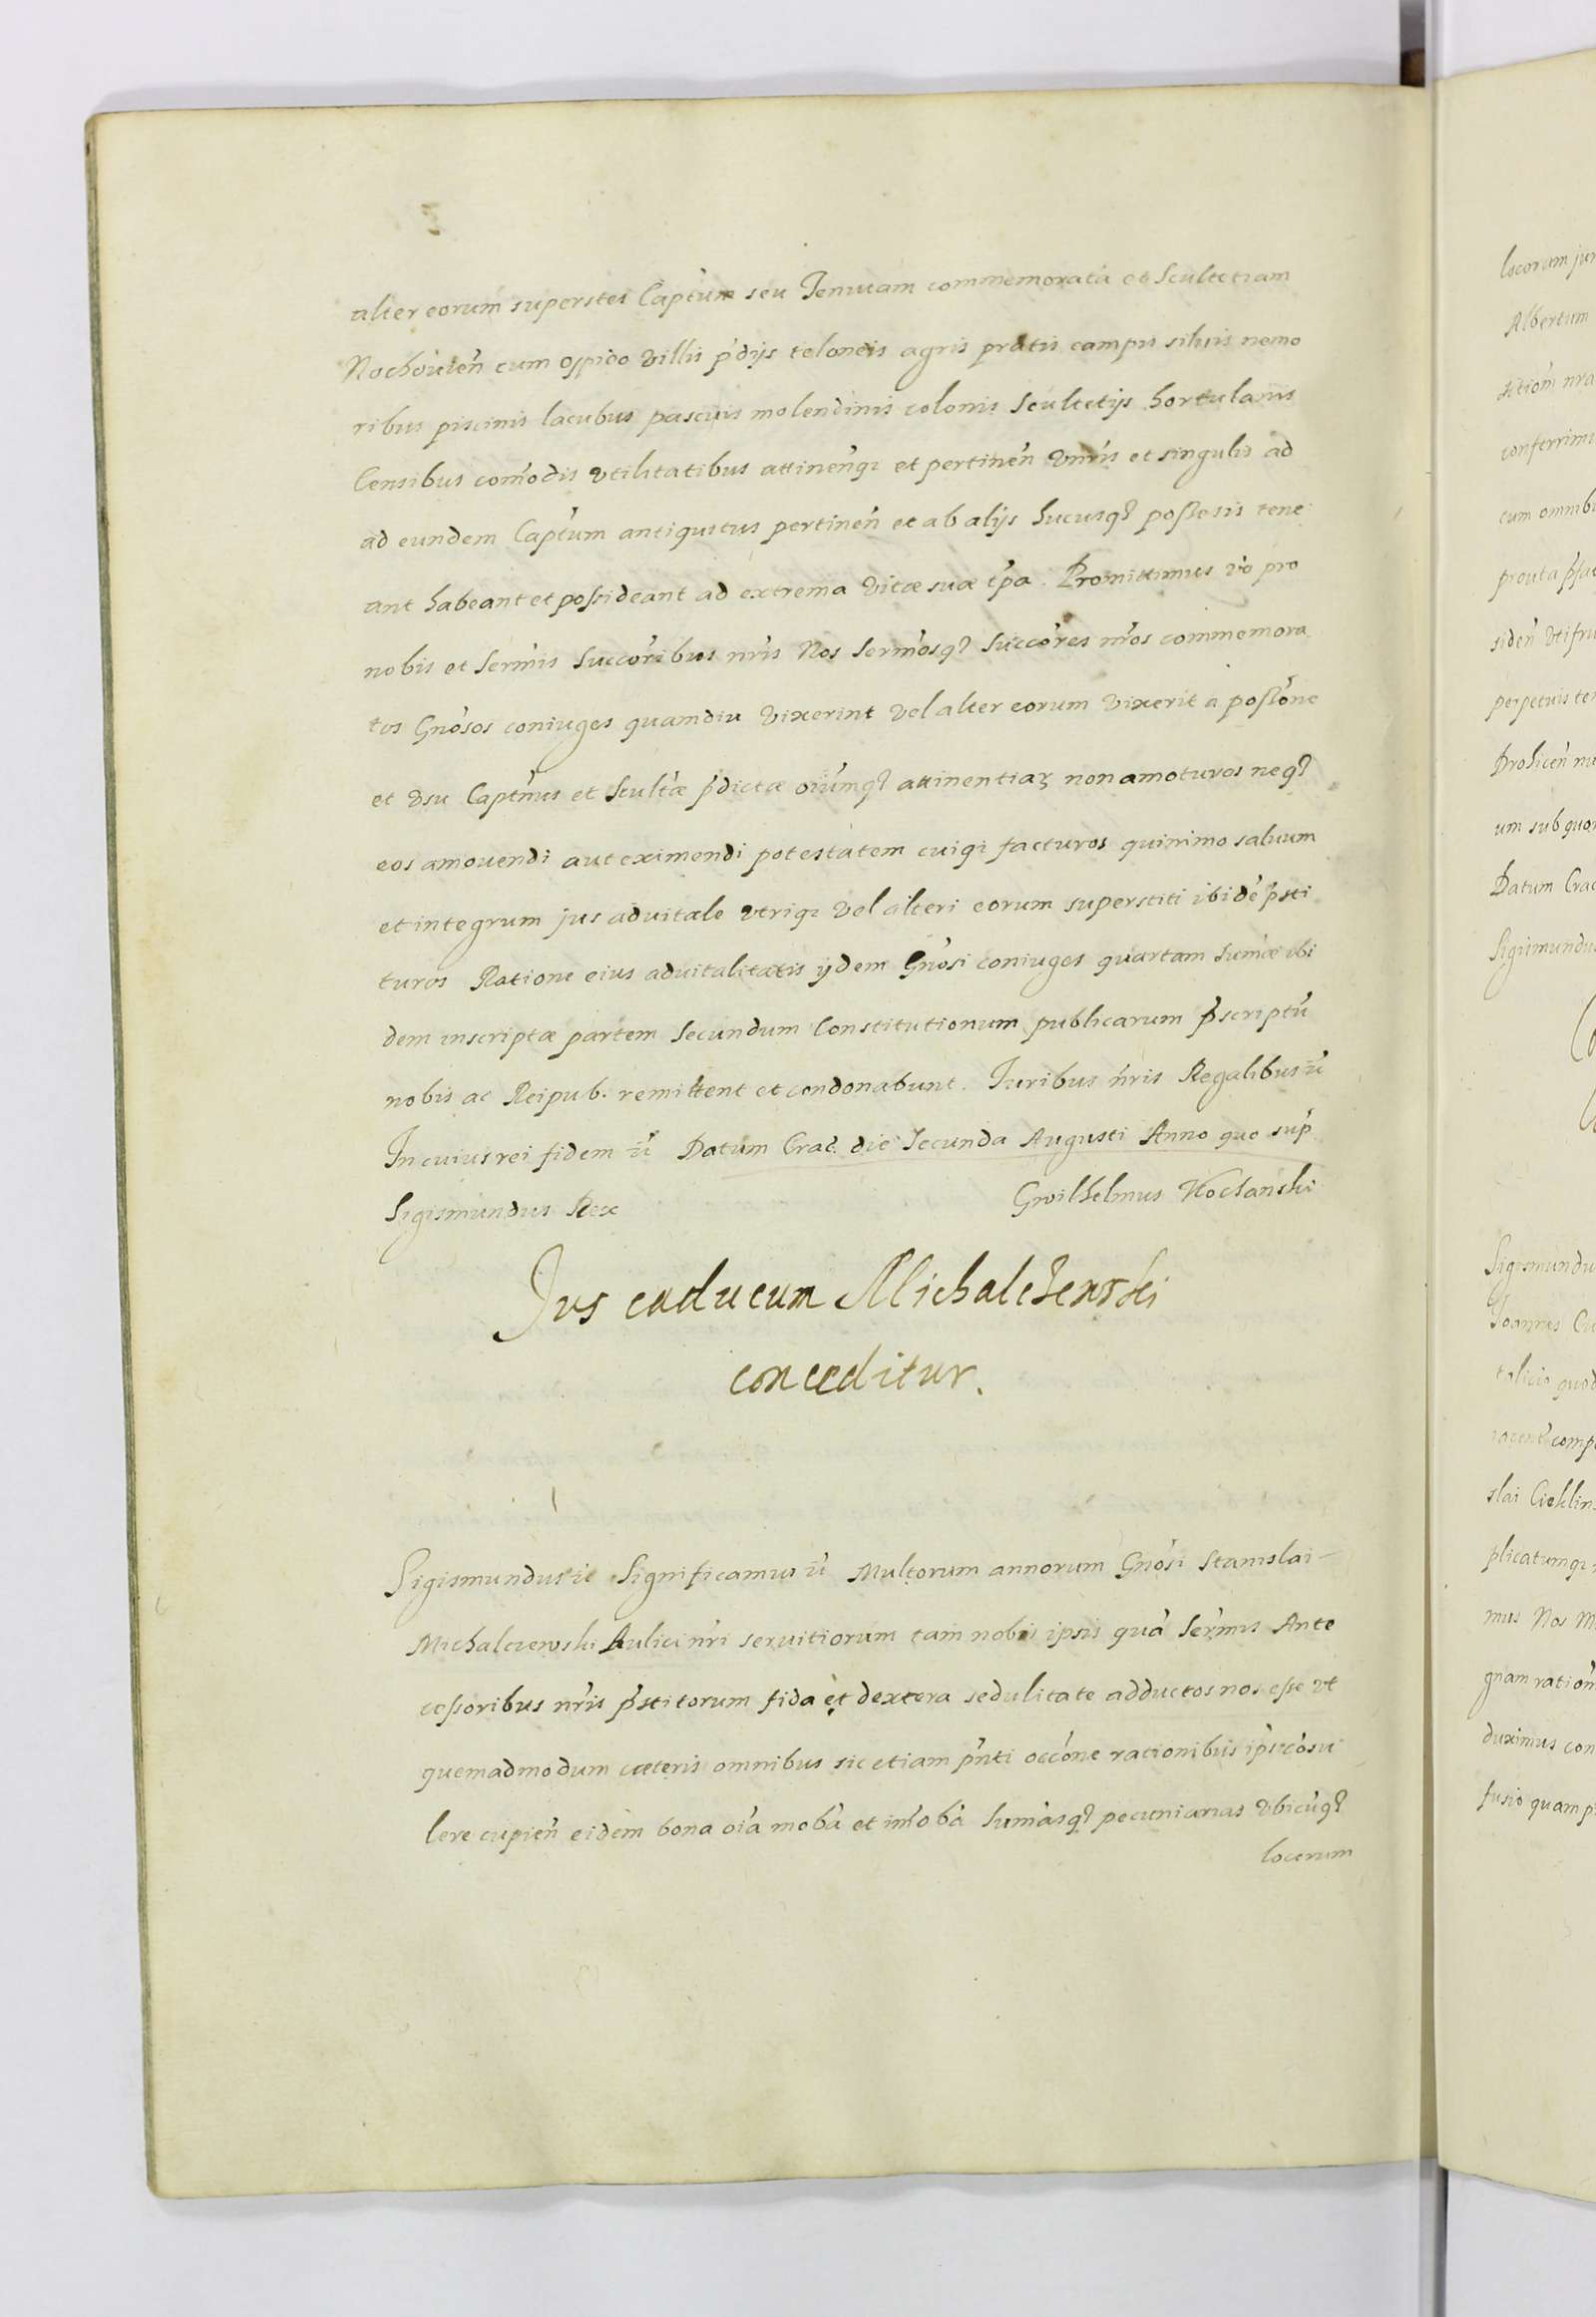 alter eorum superstes Captum seu Tenutam commemorata et Scultetiam
Nochouien̄ cum oppido villis p̄dijs teloneis agris pratis campis siluis nemo
ribus piscinis lacubus pascuis molendinis colonis Scultetijs hortulanis
Censibus com̄odis vtilitatibus attinen̄q₃ et pertinen̄ vnir̄is et singulis ad
ad eundem Captum antiquitus pertinen̄ et ab alijs hucusq₃ possesis tene
ant habeant et possideant ad extrema vitæ suæ tp̄a. Promittimus v̄o pro
nobis et Serm̄is Succor̄ibus nr̄is Nos Serm̄osq₃ Succor̄es nr̄os commemora
tos Gnōsos coniuges quamdiu vixerint vel alter eorum vixerit a possōne
et vsu Captn̄us et Scult̄æ p̄dictæ oiūmq₃ attinentiaꝝ non amoturos neq₃
eos amouendi aut eximendi potestatem cuiq₃ facturos quinimo saluum
et integrum jus aduitale vtriq₃ vel alteri eorum superstiti ibidē p̄sti
turos Ratione eius aduitalitatis ijdem Gnōsi coniuges quartam sum̄æ ibi
dem inscriptæ partem Secundum Constitutionum publicarum p̄scriptū
nobis ac Reipub. remittent et condonabunt. Juribus nr̄is Regalibus ec̄
In cuius rei fidem ec̄ Datum Crac. die Secunda Augusti Anno quo sup̄
Sigismundus Rex Gwilhelmus Kochanski
Jus caducum Michalczewski
conceditur.
Sigismundus ic Significamus ec̄ Multorum annorum Gnōsi Stanislai
Michalczewski Aulici nr̄i seruitiorum tam nobis ipsis quā Serm̄is Ante
cessoribus nr̄is p̄stitorum fida et dextera sedulitate adductos nos esse vt
quemadmodum cæteris omnibus sic etiam pn̄ti occōne rationibus ips. cōsu
lere cupien̄ eidem bona oīa mob̄a et im̄ob̄a Sum̄asq₃ pecuniarias vbicūq₃
locorum
locorum jur
Albertum
sitiom̄ nra
conferrimu
cum omnibu
prout a p̄fa
siden̄ vtifru
perpetuis te
Prolicen̄ nu
um sub quo
Datum Crac
Sigismundu
Sigismundu
Joannes Cu
talicio quod
comp
slai Cieklin
plicatumq₃
mus Nos M
gnam ration̄
duximus con
fusio quam p